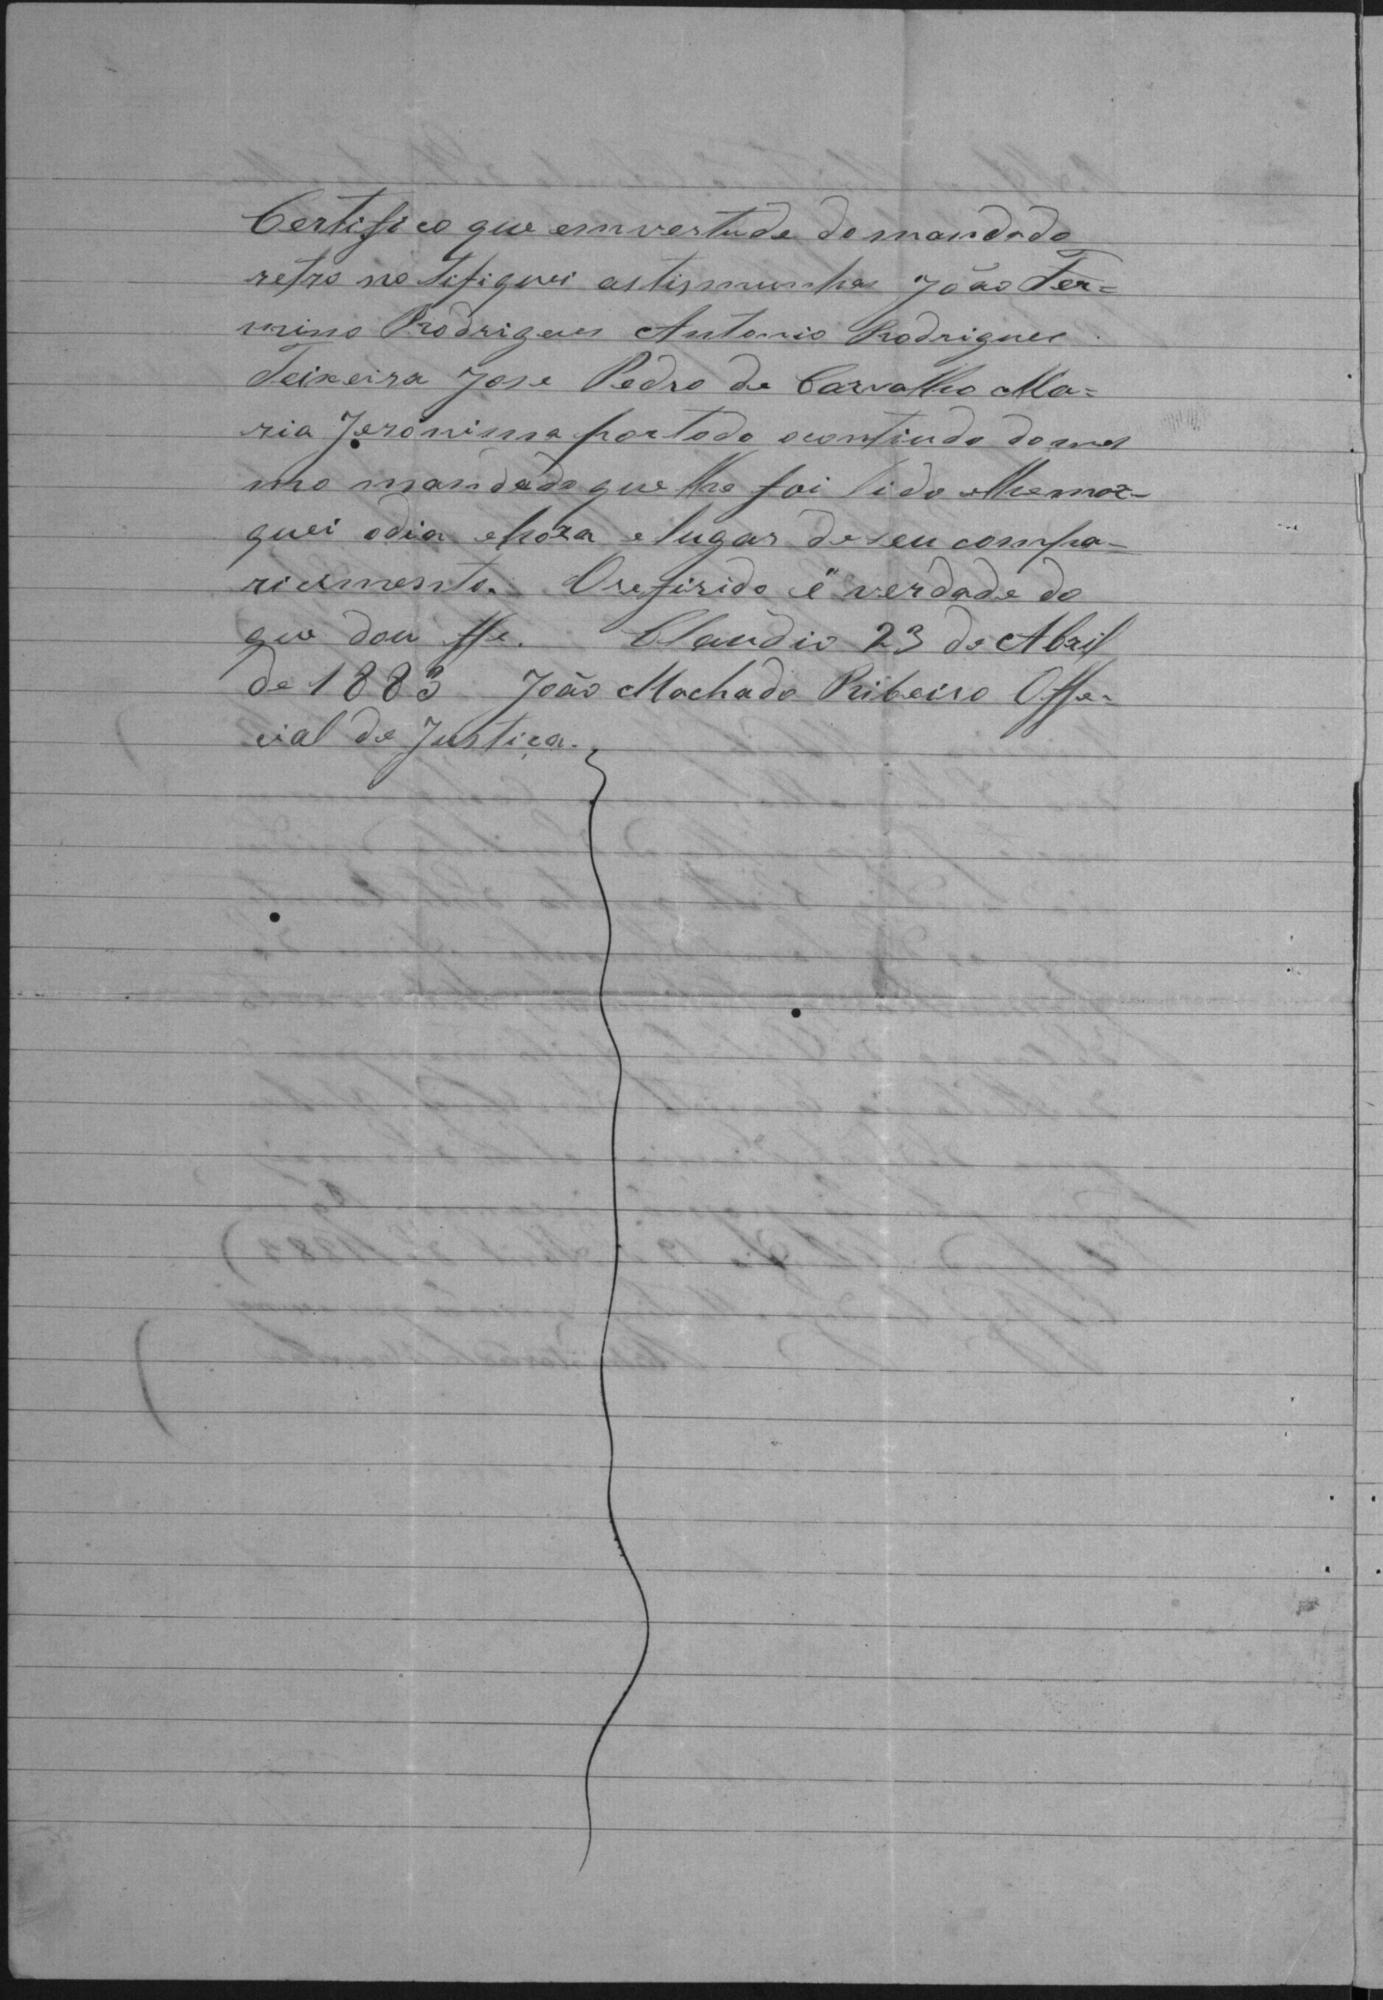 Certifico que em vertude do mandado
retro notifiquei as tismunhas João Fer=
mino Rodrigues Antonio Rodrigues
Teixeira Jose Pedro de Carvalho Ma=
ria Jeronima por todo o contiudo do mes
mo mandado que lhe foi lido e lhe mar=
quei o dia e hora e lugar de seu compa=
riciemento. O refirido é verdade do
que dou ffe. Claudio 23 de Abril
de 1883 João Machado Ribeiro Offe=
cial de Justiça.